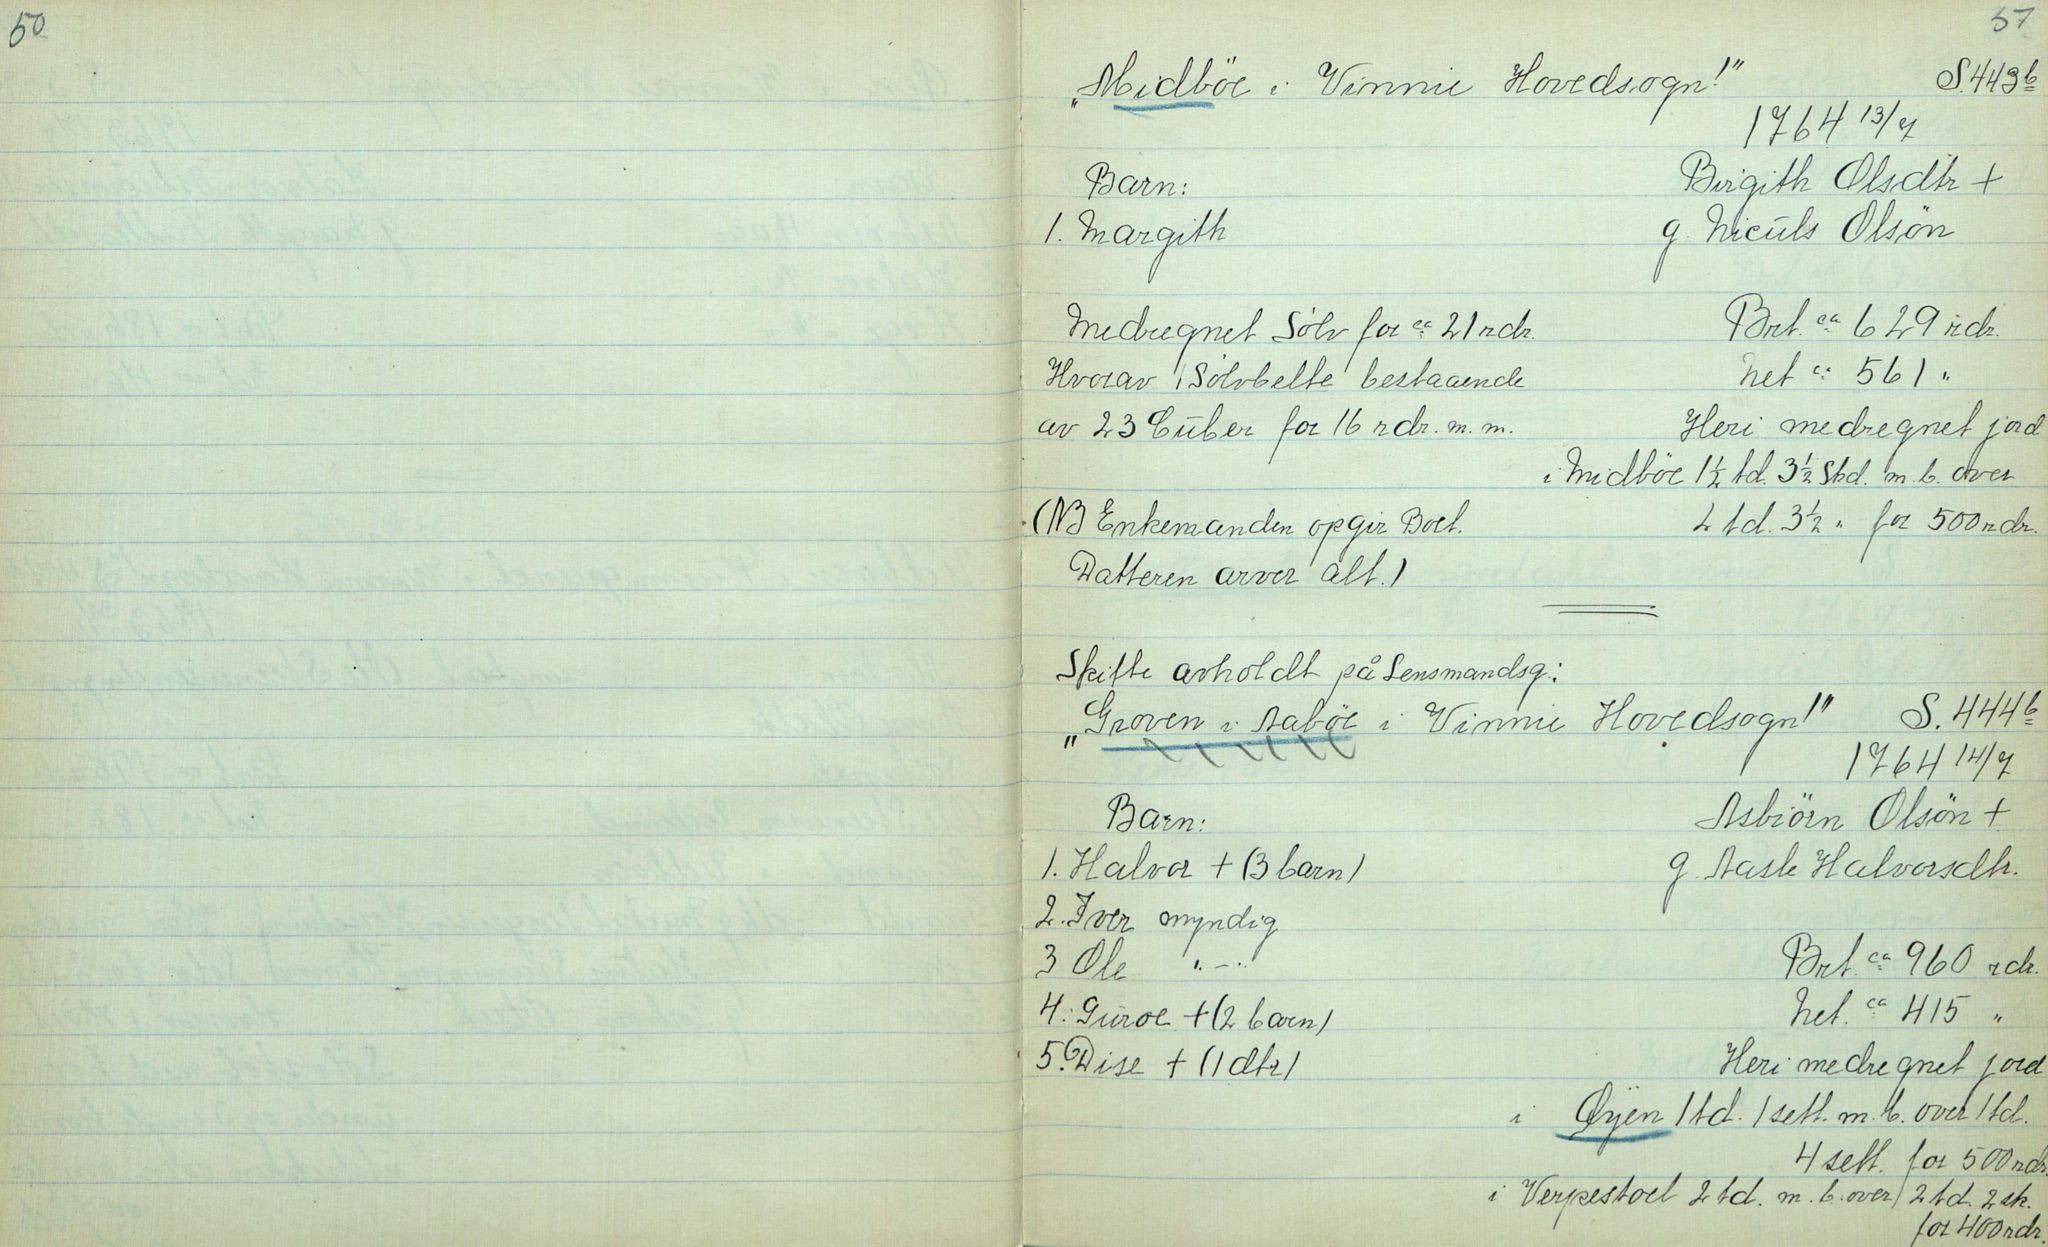 50
57
„Midböe i Vinnie Hovedsogn!" S.443b
1764 13/7
Barn: Birgith Olsdtr +
1. Margith g. Niculs Olsön
Medregnet Sölv for ca 21 rdr. Brt. ca 629 rdr.
Hvorav 1 Sölvbelte bestaaende Net ca 561 "
av 23 Cuber for 16 rdr. m. m. Heri medregnet jord
i Midböe 1½ td. 3½ Skd. m. b. over
(NB Enkemanden opgir Boet. 2 td. 3½ " for 500 rdr.
Datteren arver alt.)
Skifte avholdt på Lensmandsg:
„Groven i Aaböe i Vinnie Hovedsogn!" S. 444b
1764 14/7
Barn: Asbiörn Olsön +
1. Halvor + (3 barn) g. Aasle Halvorsdtr.
2. Iver myndig
3 Ole " — " Brt. ca 960 rdr.
4. Guroe + (2 barn) Net. ca 415 "
5. Dise + (1 dtr) Heri medregnet jord
i Øyen 1 td. 1 sett. m. b. over 1 td.
4 sett. for 500 rdr.
i Verpestoel 2 td. m. b. over 2 td. 2 sk.
for 400 rdr.